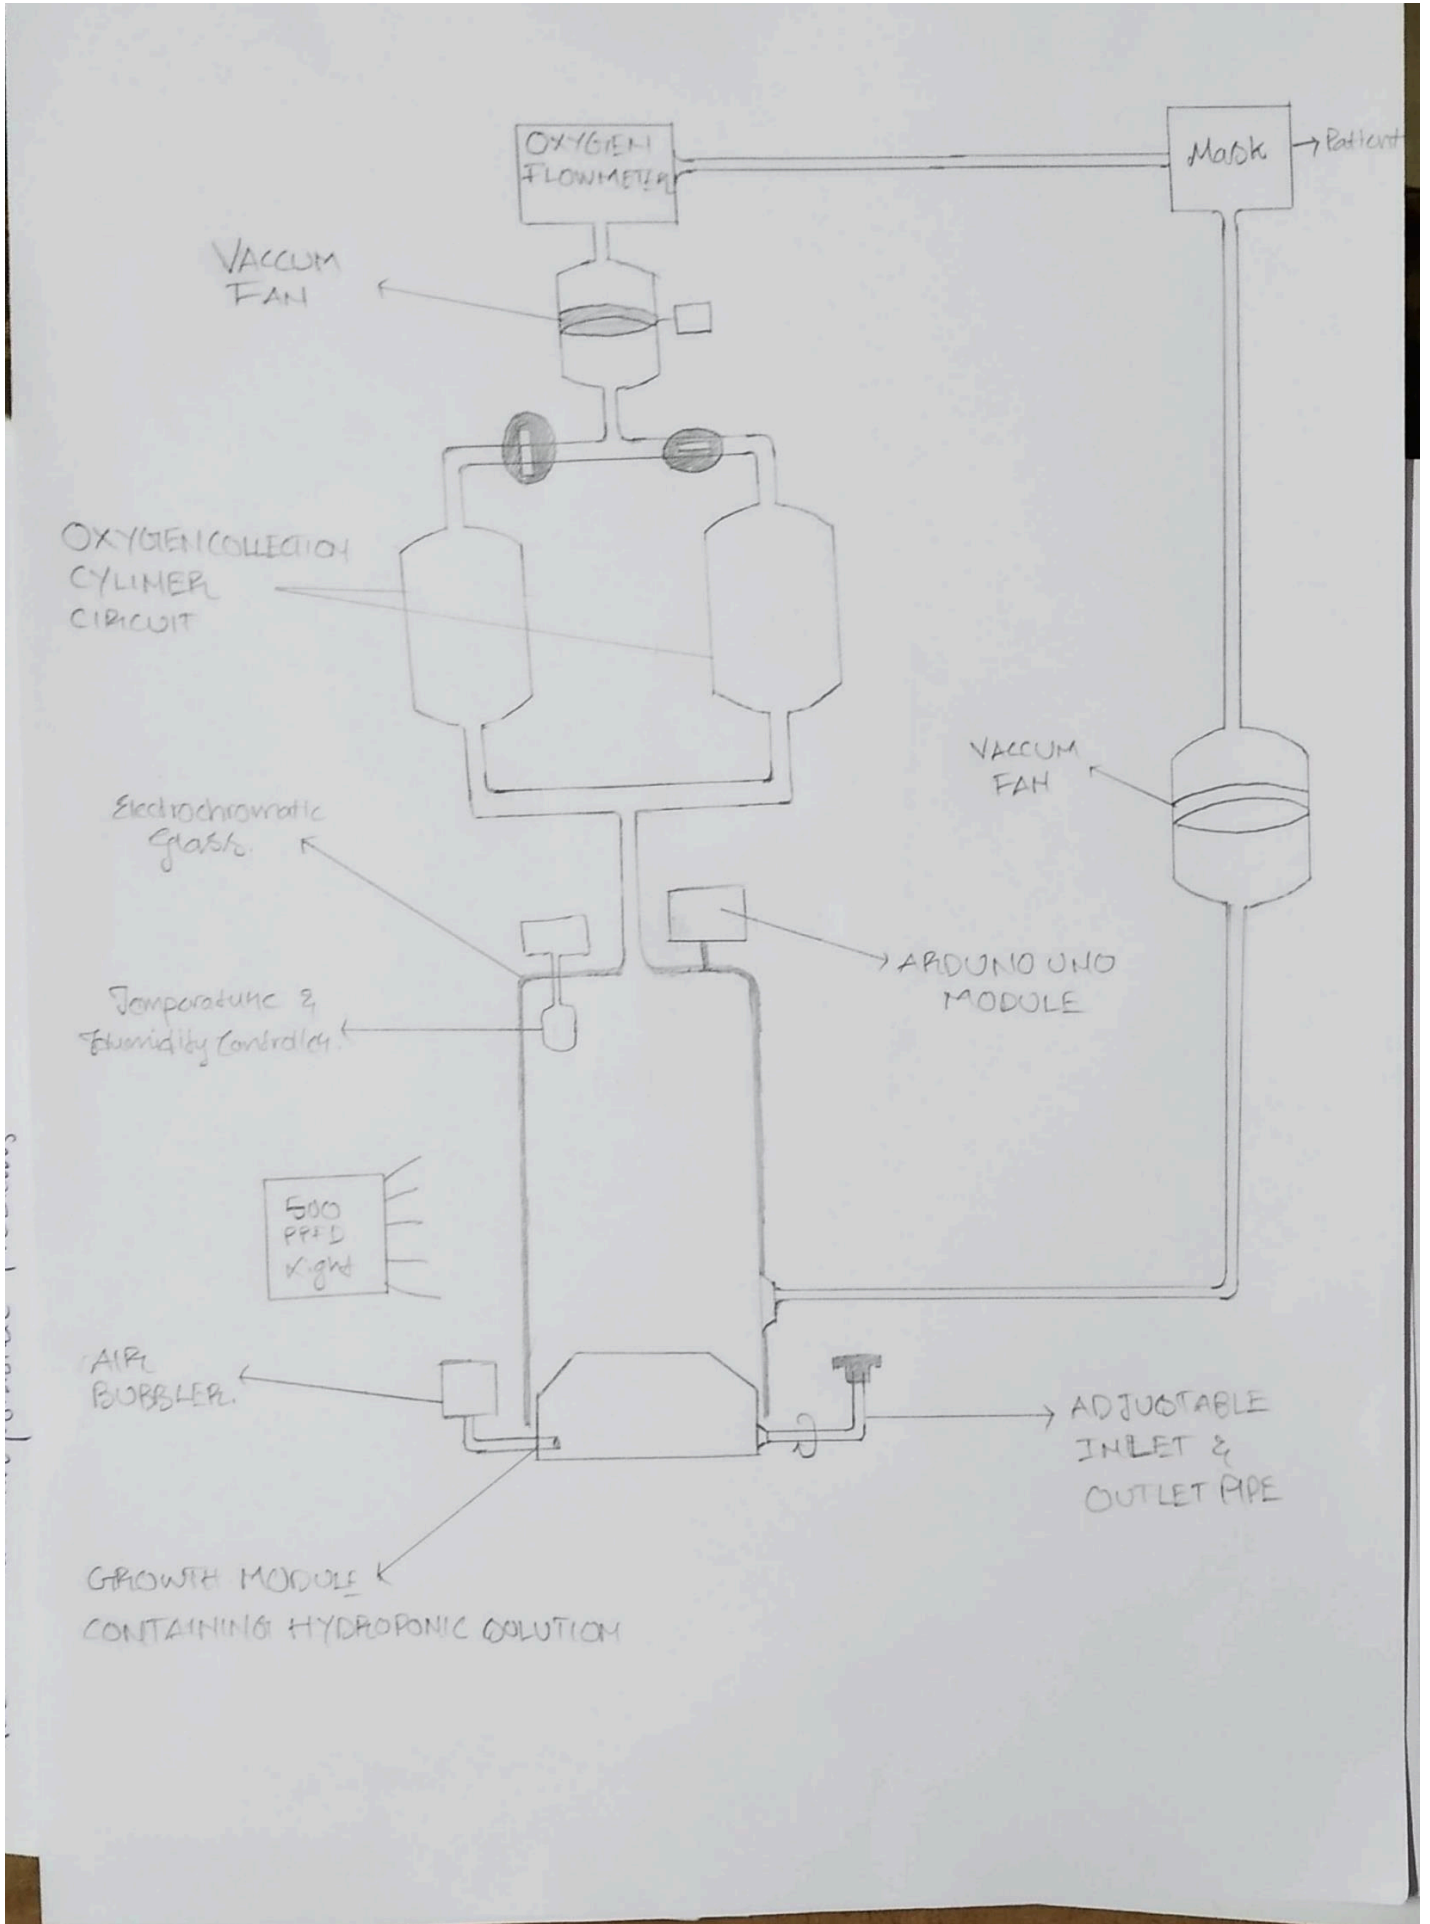 OXYGEN
FLOWMETER
Mask
Patient
VACCUM
FAN
OXYGEN COLLECTION
CYLIMER
CIRCUIT
VACCUM
FAN
Electrochromatic
Glass.
ARDUNO UNO
MODULE
Temperature &
Humidity Controller.
500
PPFD
Light
AIR
BUBBLER.
ADJUSTABLE
INLET &
OUTLET PIPE
GROWTH MODULE
CONTAINING HYDROPONIC SOLUTION